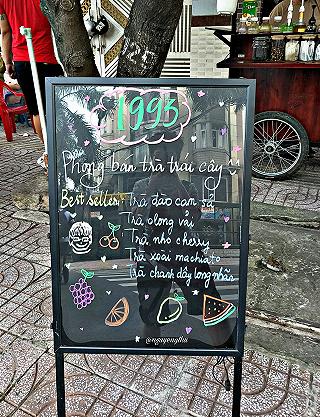 1993
Phòng ban trà trái cây
Best seller: Trà đào cam sả
Trà olong vải
Trà nho cherry
Trà xoài machiato
Trà chanh dây long nhãn
@nguyengthu